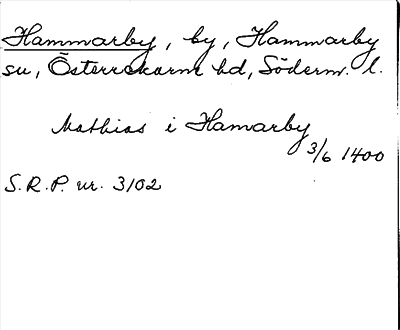 Hammarby, by, Hammarby
sn, Österrekarne hd, Söderm. l.
Mathias i Hamarby
3/6 1400
S.R.P. nr. 3102